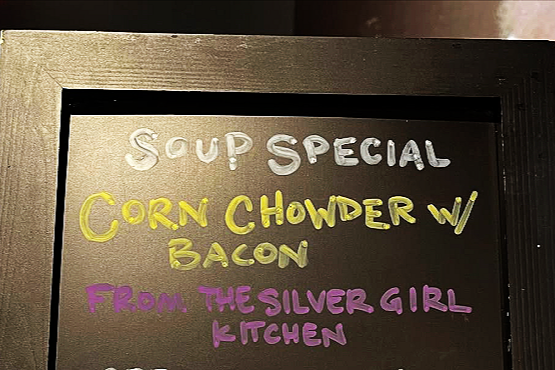 SOUP SPECIAL
CORN CHOWDER W/
BACON
FROM THE SILVER GIRL
KITCHEN